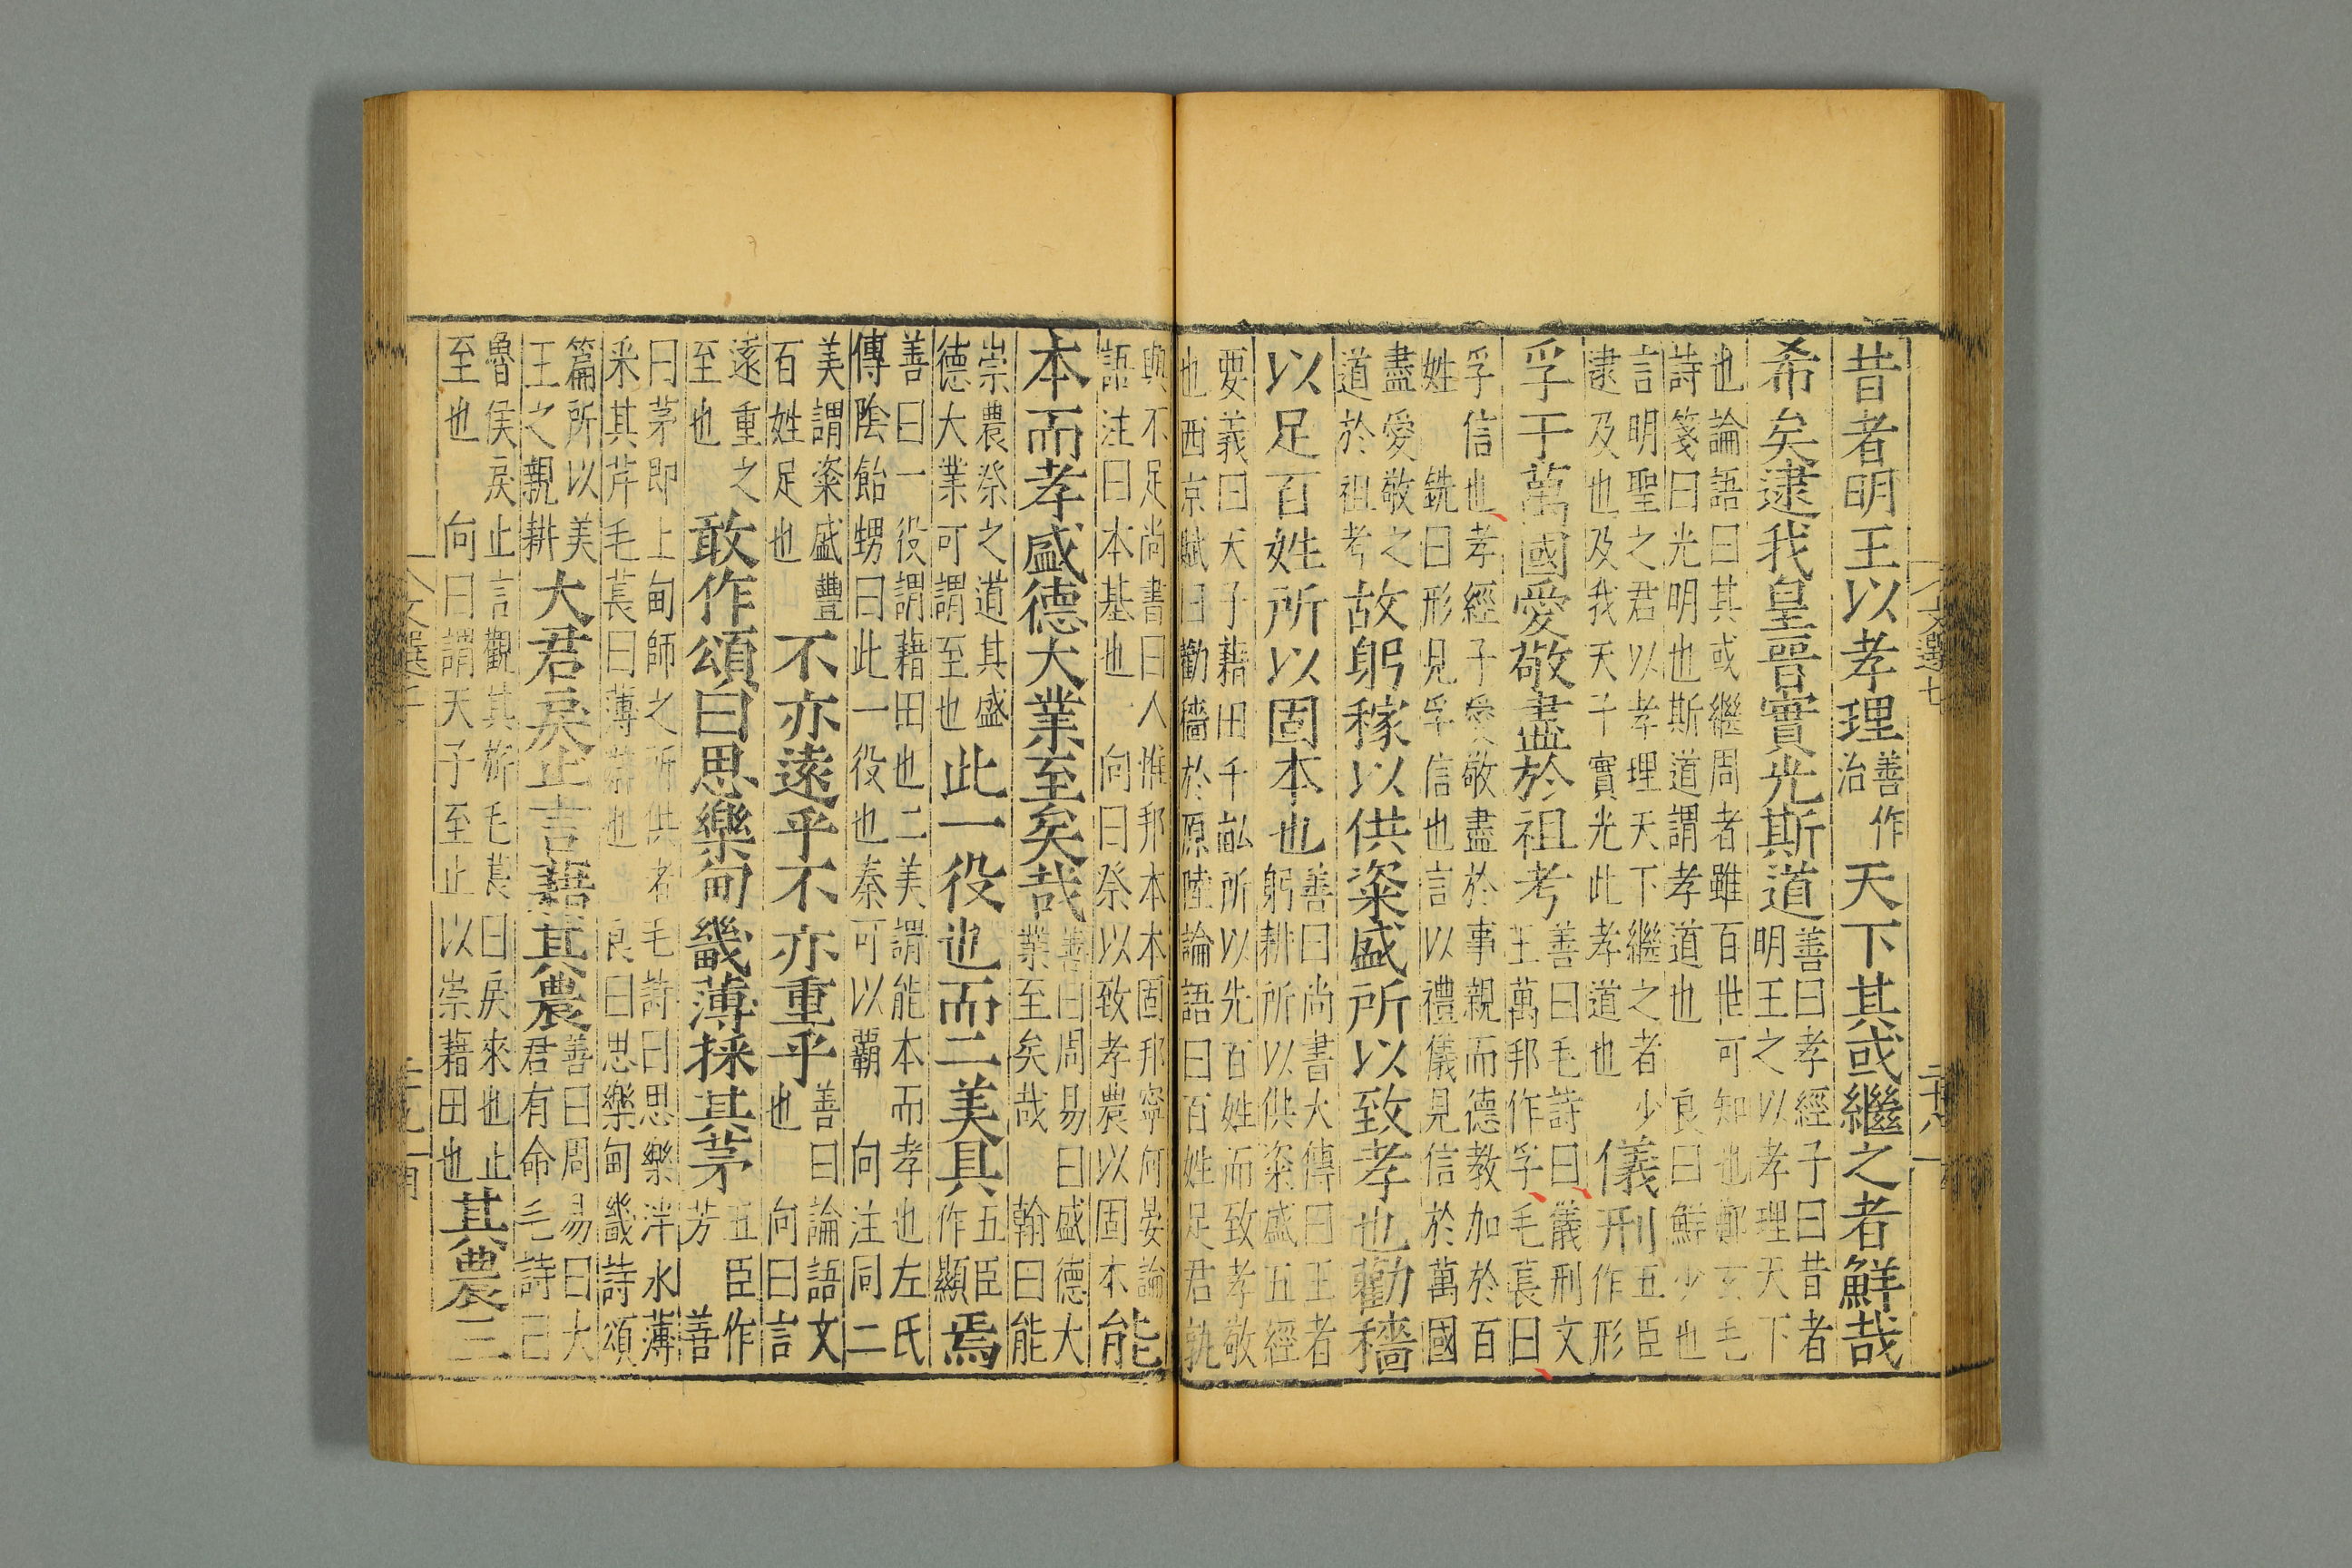 文選七 二十八
昔者明王以孝理
善作
治
天下其或繼之者鮮哉
希矣逮我皇晉實光斯道
善曰孝經子曰昔者
明王之以孝理天下
也論語曰其或繼周者雖百世可知也鄭玄毛
詩箋曰光明也斯道謂孝道也 良曰鮮少也
言明聖之君以孝理天下繼之者少
逮及也及我天子實光此孝道也
儀刑
五臣
作形
孚于萬國愛敬盡於祖考
善曰毛詩曰儀刑文
王萬邦作孚毛萇曰
孚信也孝經子愛敬盡於事親而德教加於百
姓 銑曰形見孚信也言以禮儀見信於萬國
盡愛敬之
道於祖考
故躬稼以供粢盛所以致孝也勸穡
以足百姓所以固本也
善曰尚書大傳曰王者
躬耕所以供粢盛五經
要義曰天子藉田千畝所以先百姓而致孝敬
也西京賦曰勸穡於原陸論語曰百姓足君孰
與不足尚書曰人惟邦本本固邦寧何晏論
語注曰本基也 向曰祭以致孝農以固本
能
本而孝盛德大業至矣哉
善曰周易曰盛德大
業至矣哉 翰曰能
崇農祭之道其盛
德大業可謂至也
此一役也而二美具
五臣
作顯
焉
善曰一役謂藉田也二美謂能本而孝也左氏
傳陰飴甥曰此一役也秦可以霸 向注同二
美謂粢盛豐
百姓足也
不亦遠乎不亦重乎
善曰論語文
也 向曰言
遠重之
至也
敢作頌曰思樂甸畿薄採其茅
五臣作
芳 善
曰茅即上甸師之所供者毛詩曰思樂泮水薄
采其芹毛萇曰薄辭也 良曰思樂甸畿詩頌
篇所以美
王之親耕
大君戾止言藉其農
善曰周易曰大
君有命毛詩曰
魯侯戾止言觀其旂毛萇曰戾來也止
至也 向曰謂天子至止以崇藉田也
其農三